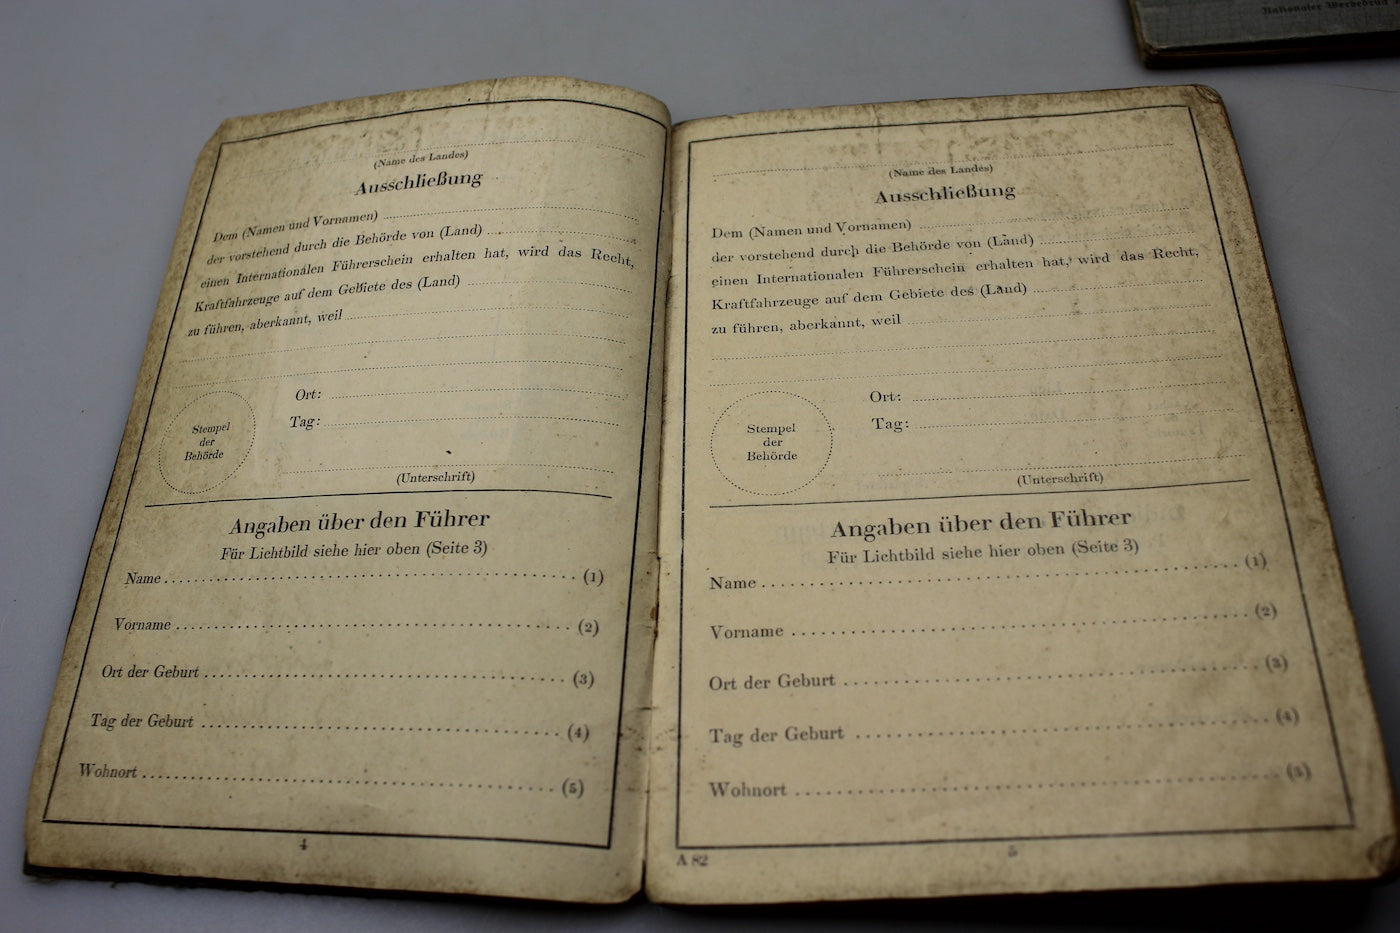 Nationaler Werbedruck
(Name des Landes)
Ausschließung
Dem (Namen und Vornamen)
der vorstehend durch die Behörde von (Land)
einen Internationalen Führerschein erhalten hat, wird das Recht,
Kraftfahrzeuge auf dem Gebiete des (Land)
zu führen, aberkannt, weil
Ort:
Tag:
Stempel
der
Behörde
(Unterschrift)
Angaben über den Führer
Für Lichtbild siehe hier oben (Seite 3)
Name (1)
Vorname (2)
Ort der Geburt (3)
Tag der Geburt (4)
Wohnort (5)
4
(Name des Landes)
Ausschließung
Dem (Namen und Vornamen)
der vorstehend durch die Behörde von (Land)
einen Internationalen Führerschein erhalten hat, wird das Recht,
Kraftfahrzeuge auf dem Gebiete des (Land)
zu führen, aberkannt, weil
Ort:
Tag:
Stempel
der
Behörde
(Unterschrift)
Angaben über den Führer
Für Lichtbild siehe hier oben (Seite 3)
Name (1)
Vorname (2)
Ort der Geburt (3)
Tag der Geburt (4)
Wohnort (5)
A 82
5